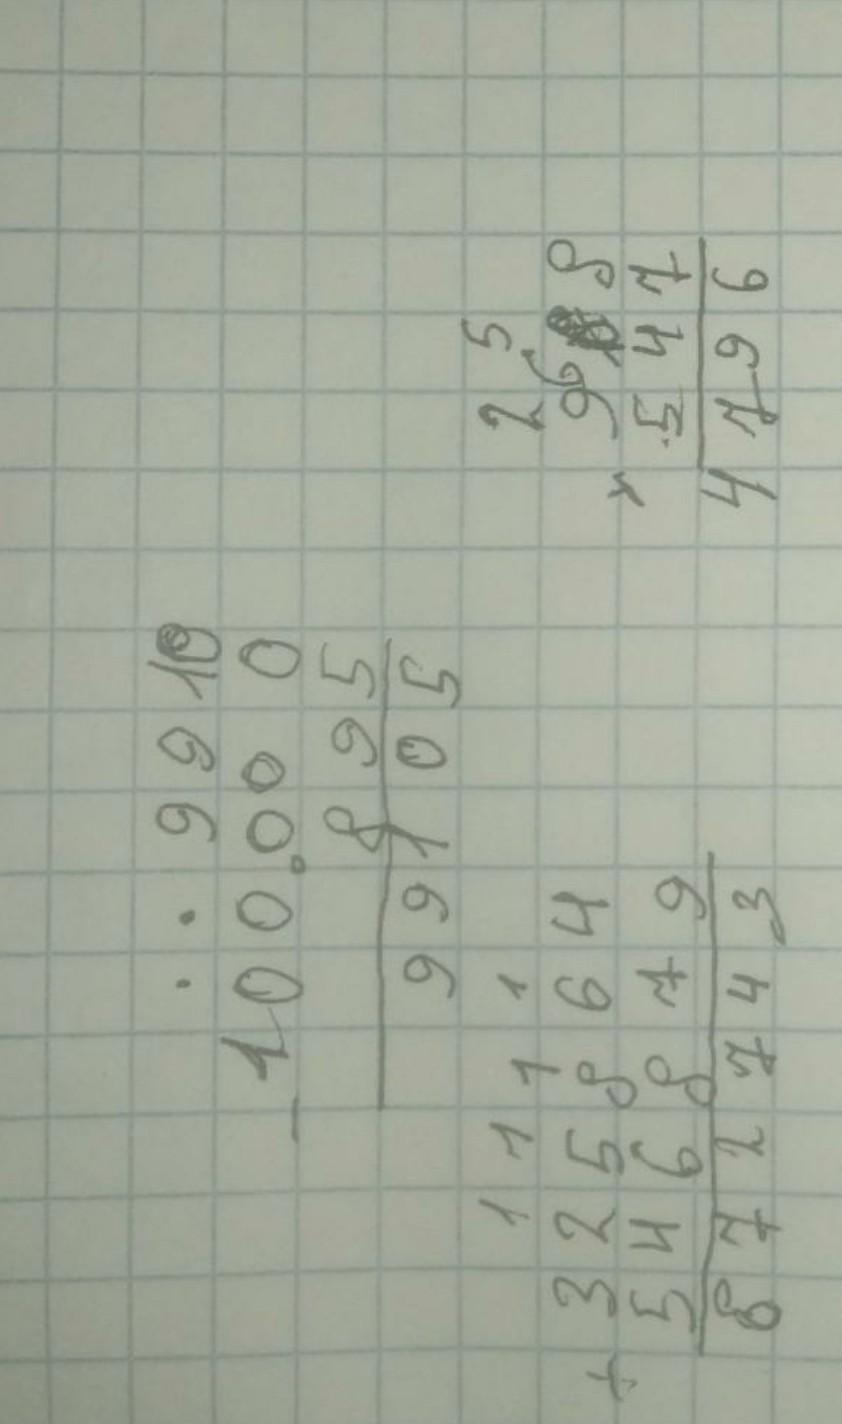 . . 9 9 10
- 100.000
895
99105
1 1 1 1
+ 325864
546879
872743
2 5
x 968
547
4796